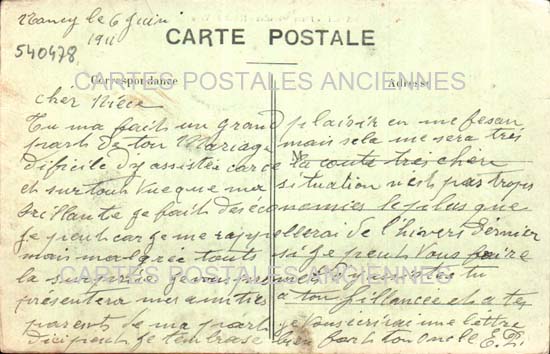 Nancy le 6 Juin
1911
CARTE POSTALE
540478
Correspondance
Adresse
CARTES POSTALES ANCIENNES
cher Nièce
Tu ma fait un grand plaisir en me fesan
part de ton Mariage mais sela me sera trés
dificile dy assister car ce la coute tres chèr
et surtout vue que ma situation n'est pas trops
brillante je fait des économies le plus que
je peut car je me rappellerai de l'hivers dernier
mais malgrée touts si je peut vous faire
la surprise je vous
CARTES POSTALES ANCIENNES
tu
presentera mes amities a ton fillancée et a tes
parents de ma part je vous écrirai une lettre
je t'embrasse bien fort ton oncle E.